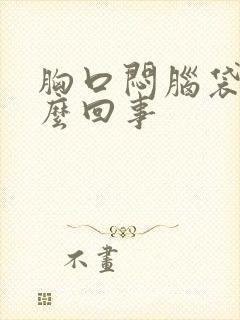 胸口悶腦袋
麼回事
不畫